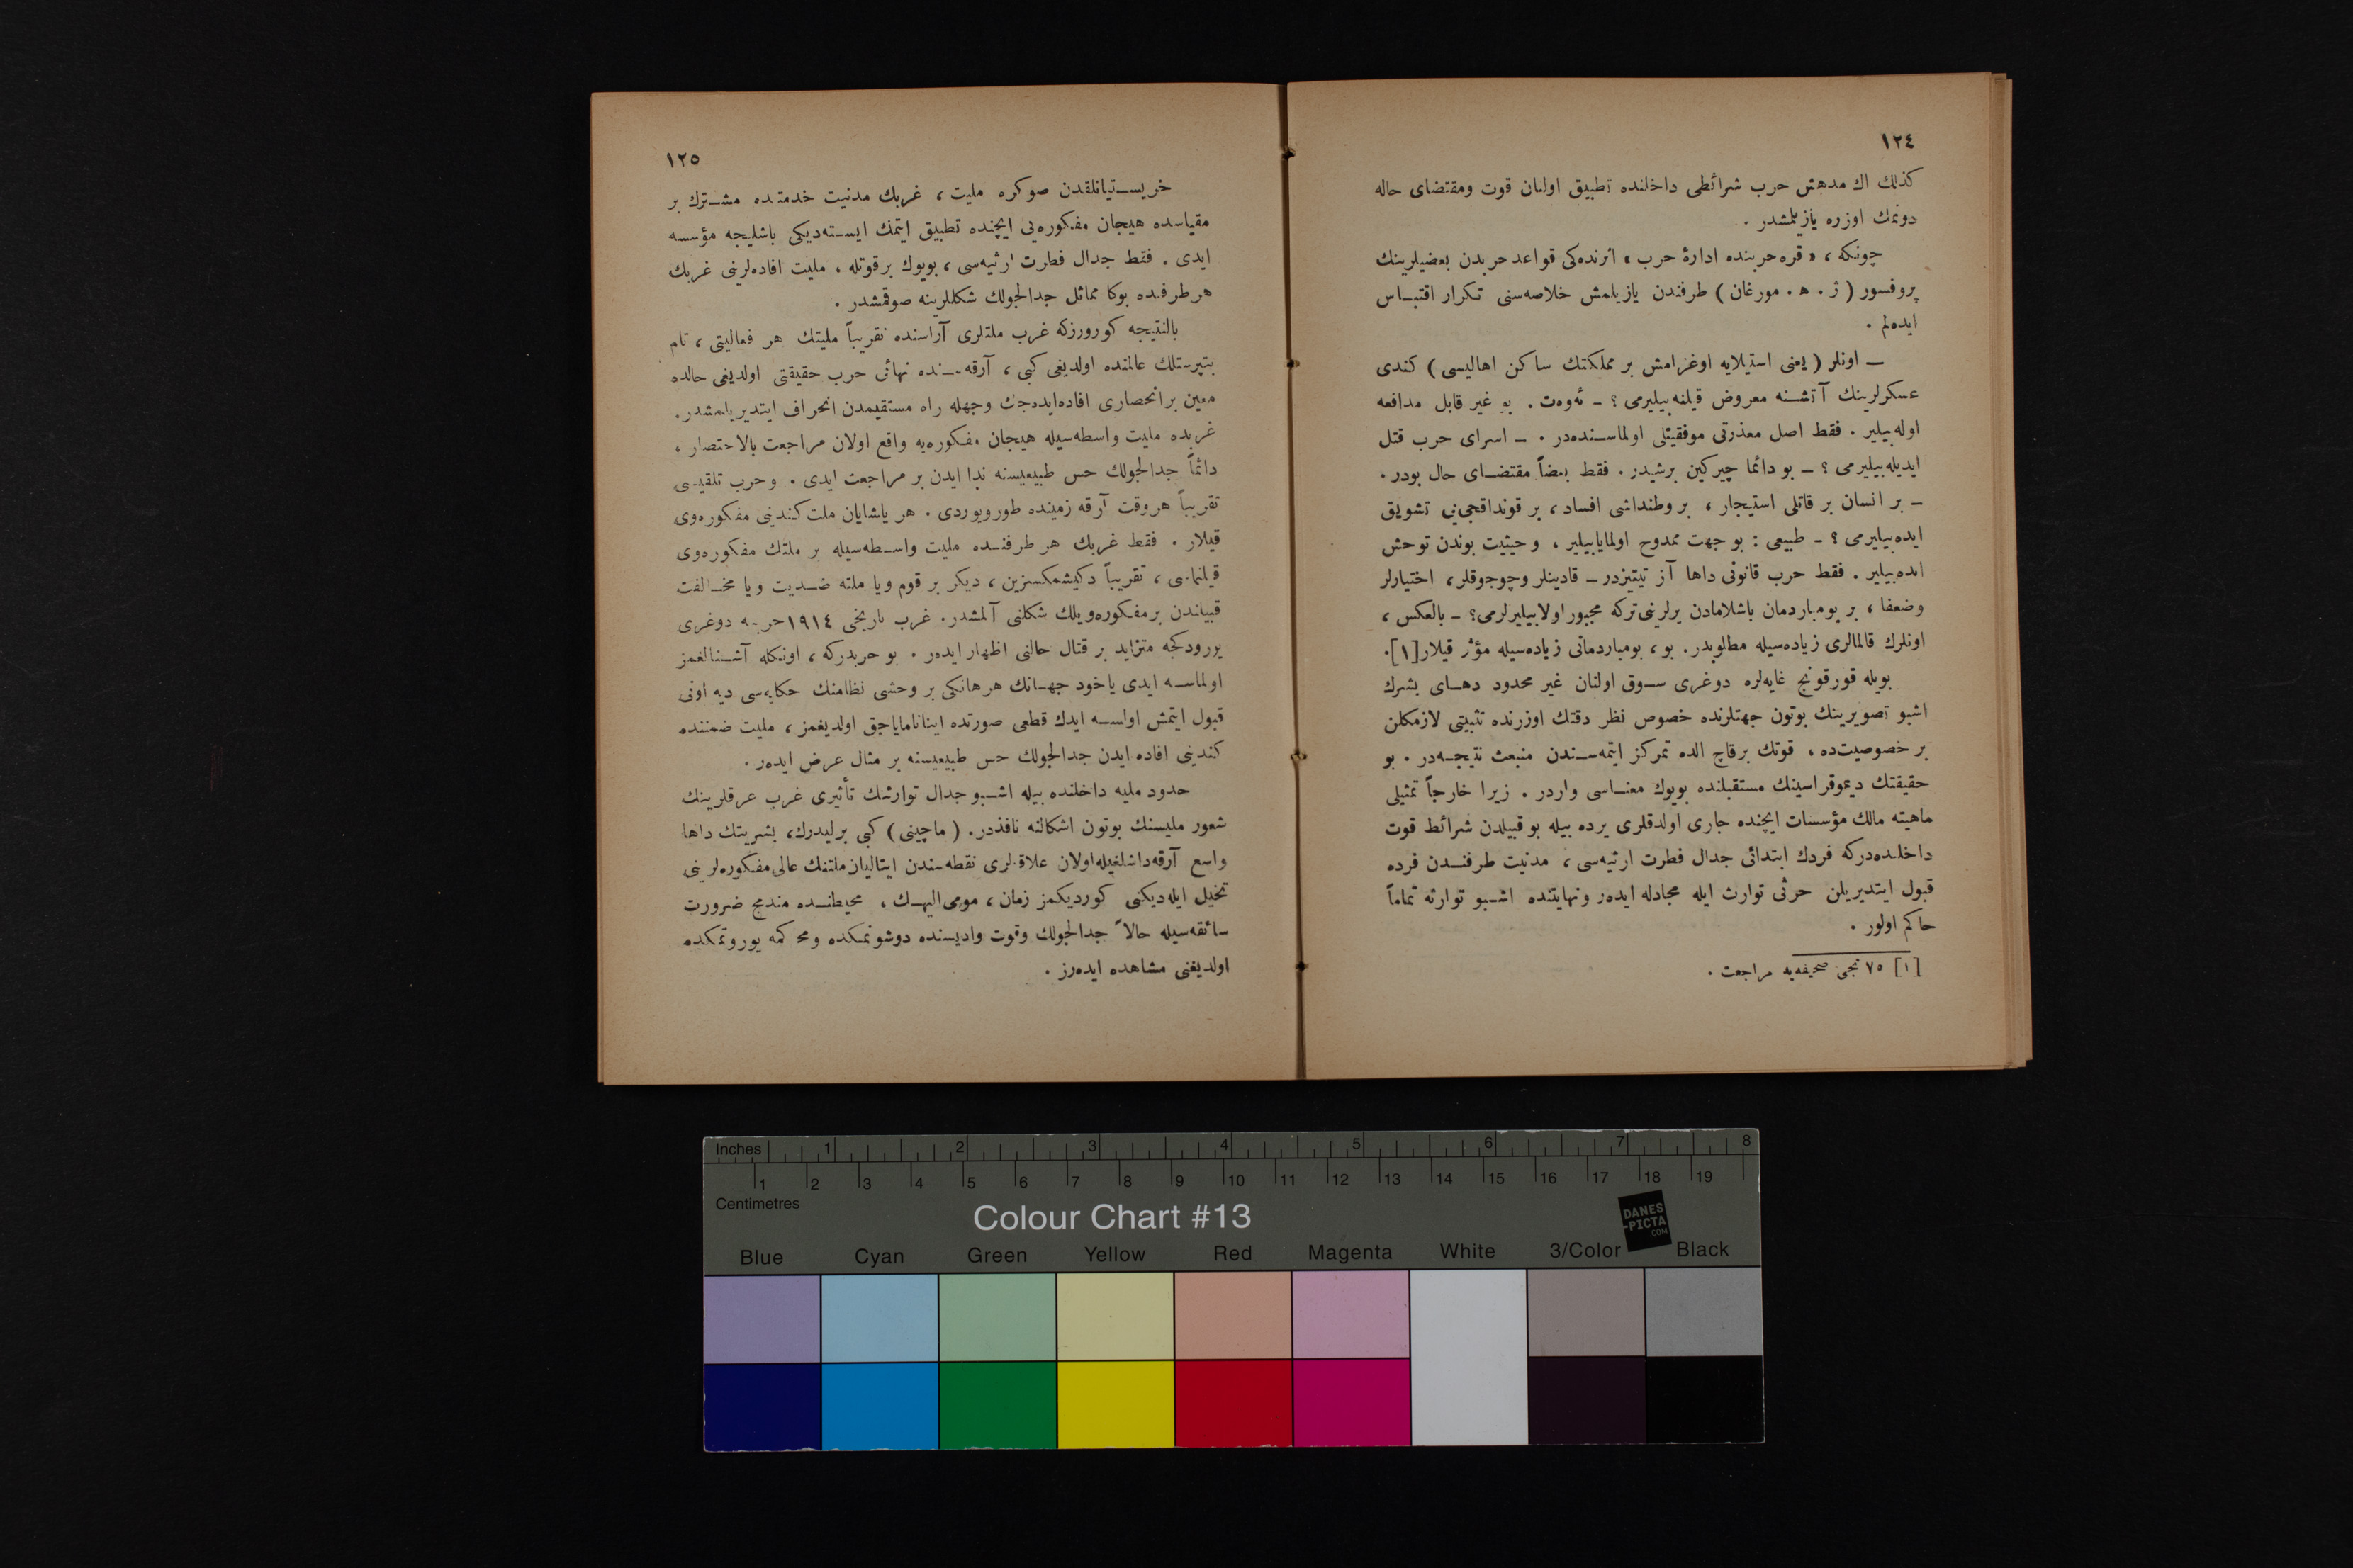 ١٢٤
كذلك اك مدهش حرب شرائطى داخلنده تطبيق اولنان قوت ومقتضاى حاله
دونمك اوزره يازيلمشدر .
چونكه ، « قره حربنده ادارۀ حرب » اثرنده‌كى قواعد حربدن بعضيلرينك
پروفسور ( ژ . ه . مورغان ) طرفندن يازيلمش خلاصه‌سنى تكرار اقتبـاس
ايده‌لم .
— اونلر ( يعنى استيلايه اوغرامش بر مملكتك ساكن اهاليسى ) كندى
عسكرلرينك آتشـنه معروض قيلنه‌بيليرمى ؟ – ئه‌وه‌ت . بو غير قابل مدافعه
اوله‌بيلير . فقط اصل معذرتى موفقيتلى اولماسـنده‌در . – اسراى حرب قتل
ايديله‌بيليرمى ؟ – بو دائما چيركين برشيدر . فقط بعضاً مقتضـاى حال بودر .
– بر انسان بر قاتلى استيجار ، بر وطنداشى افساد ، بر قونداقجى‌يى تشويق
ايده‌بيليرمى ؟ – طبيعى : بو جهت ممدوح اولمايابيلير ، وحيثيت بوندن توحش
ايده‌بيلير . فقط حرب قانونى داها آز تيتيزدر – قادينلر وچوجوقلر، اختيارلر
وضعفا ، بر بومباردمان باشلامادن يرلرينى تركه مجبور اولابيليرلرمى؟ – بالعكس ،
اونلرك قالمالرى زياده‌سيله مطلوبدر. بو ، بومباردمانى زياده‌سيله مؤثر قيلار[١].
بويله قورقونج غايه‌لره دوغرى سـوق اولنان غير محدود دهـاى بشرك
اشبو تصويرينك بوتون جهتلرنده خصوص نظر دقتك اوزرنده تثبيتى لازمكلن
بر خصوصيت‌ده ، قوتك برقاچ الده تمركز ايتمه‌سـندن منبعث نتيجـه‌در . بو
حقيقتك ديموقراسينك مستقبلنده بويوك معنـاسى واردر . زيرا خارجاً تمثيلى
ماهيته مالك مؤسسات ايچنده جارى اولدقلرى يرده بيله بو قبيلدن شرائط قوت
داخلنده‌دركه فردك ابتدائى جدال فطرت ارثيه‌سى ، مدنيت طرفنـدن فرده
قبول ايتديريلن حرثى توارث ايله مجادله ايده‌ر ونهايتنده اشـبو توارثه تماماً
حاكم اولور .
[١] ٧٥ نجى صحيفه‌يه مراجعت .
١٢٥
خريسـتيانلقدن صوكره مليت ، غربك مدنيت خدمتنده مشـترك بر
مقياسده هيجان مفكوره‌يى ايچنده تطبيق ايتمك ايسـته‌ديكى باشليجه مؤسسه
ايدى . فقط جدال فطرت ارثيه‌سى ، بويوك برقوتله ، مليت افاده‌لرينى غربك
هر طرفنده بوكا مماثل جدالجولك شكللرينه صوقمشدر .
بالنتيجه كورورزكه غرب ملتلرى آراسنده تقريباً مليتك هر فعاليتى ، تام
بتپرستلك عالمنده اولديغى كبى ، آرقه‌سـنده نهائى حرب حقيقتى اولديغى حالده
معين برانحصارى افاده‌ايده‌جك وجهله راه مستقيمدن انحراف ايتديريلمشدر.
غربده مليت واسطه‌سيله هيجان مفكوره‌يه واقع اولان مراجعت بالاختصار ،
دائماً جدالجولك حس طبيعيسنه ندا ايدن بر مراجعت ايدى . وحرب تلقيسى
تقريباً هروقت آرقه زمينده طورويوردى . هر ياشايان ملت كندينى مفكوره‌وى
قيلار . فقط غربك هر طرفنـده مليت واسـطه‌سيله بر ملتك مفكوره‌وى
قيلنماسى ، تقريباً دكيشمكسزين ، ديكر بر قوم ويا ملته ضـديت ويا مخـالفت
قبيلندن برمفكوره‌ويلك شكلنى آلمشدر. غرب تاريخى ١٩١٤ حربنه دوغرى
يورودكجه متزايد بر قتال حالنى اظهار ايده‌ر . بو حربدركه ، اونكله آشـنالغمز
اولماسـه ايدى ياخود جهـانك هرهانكى بر وحشى نظامنك حكايه‌سى ديه اونى
قبول ايتمش اولسـه ايدك قطعى صورتده اينانامايا‌جق اولديغمز ، مليت ضمننده
كندينى افاده ايدن جدالجولك حس طبيعيسنه بر مثال عرض ايده‌ر .
حدود مليه داخلنده بيله اشـبو جدال توارثنك تأثيرى غرب عرقلرينك
شعور مليسنك بوتون اشكالنه نافذدر. ( ماچينى ) كبى برليدرك، بشريتك داها
واسع آرقه‌داشلغيله‌اولان علاقه‌لرى نقطه‌سندن ايتاليان‌ملتنك عالى‌مفكوره‌لرينى
تخيل ايله‌ديكنى كورديكمز زمان ، مومى‌اليهـك ، محيطنـده مندمج ضرورت
سائقه‌سيله حالاً جدالجولك وقوت واديسنده دوشونمكده ومحاكمه يوروتمكده
اولديغنى مشاهده ايده‌رز .
Inches 1 2 3 4 5 6 7 8
1 2 3 4 5 6 7 8 9 10 11 12 13 14 15 16 17 18 19
Centimetres
Colour Chart #13
DANES
-PICTA
.COM
Blue Cyan Green Yellow Red Magenta White 3/Color Black